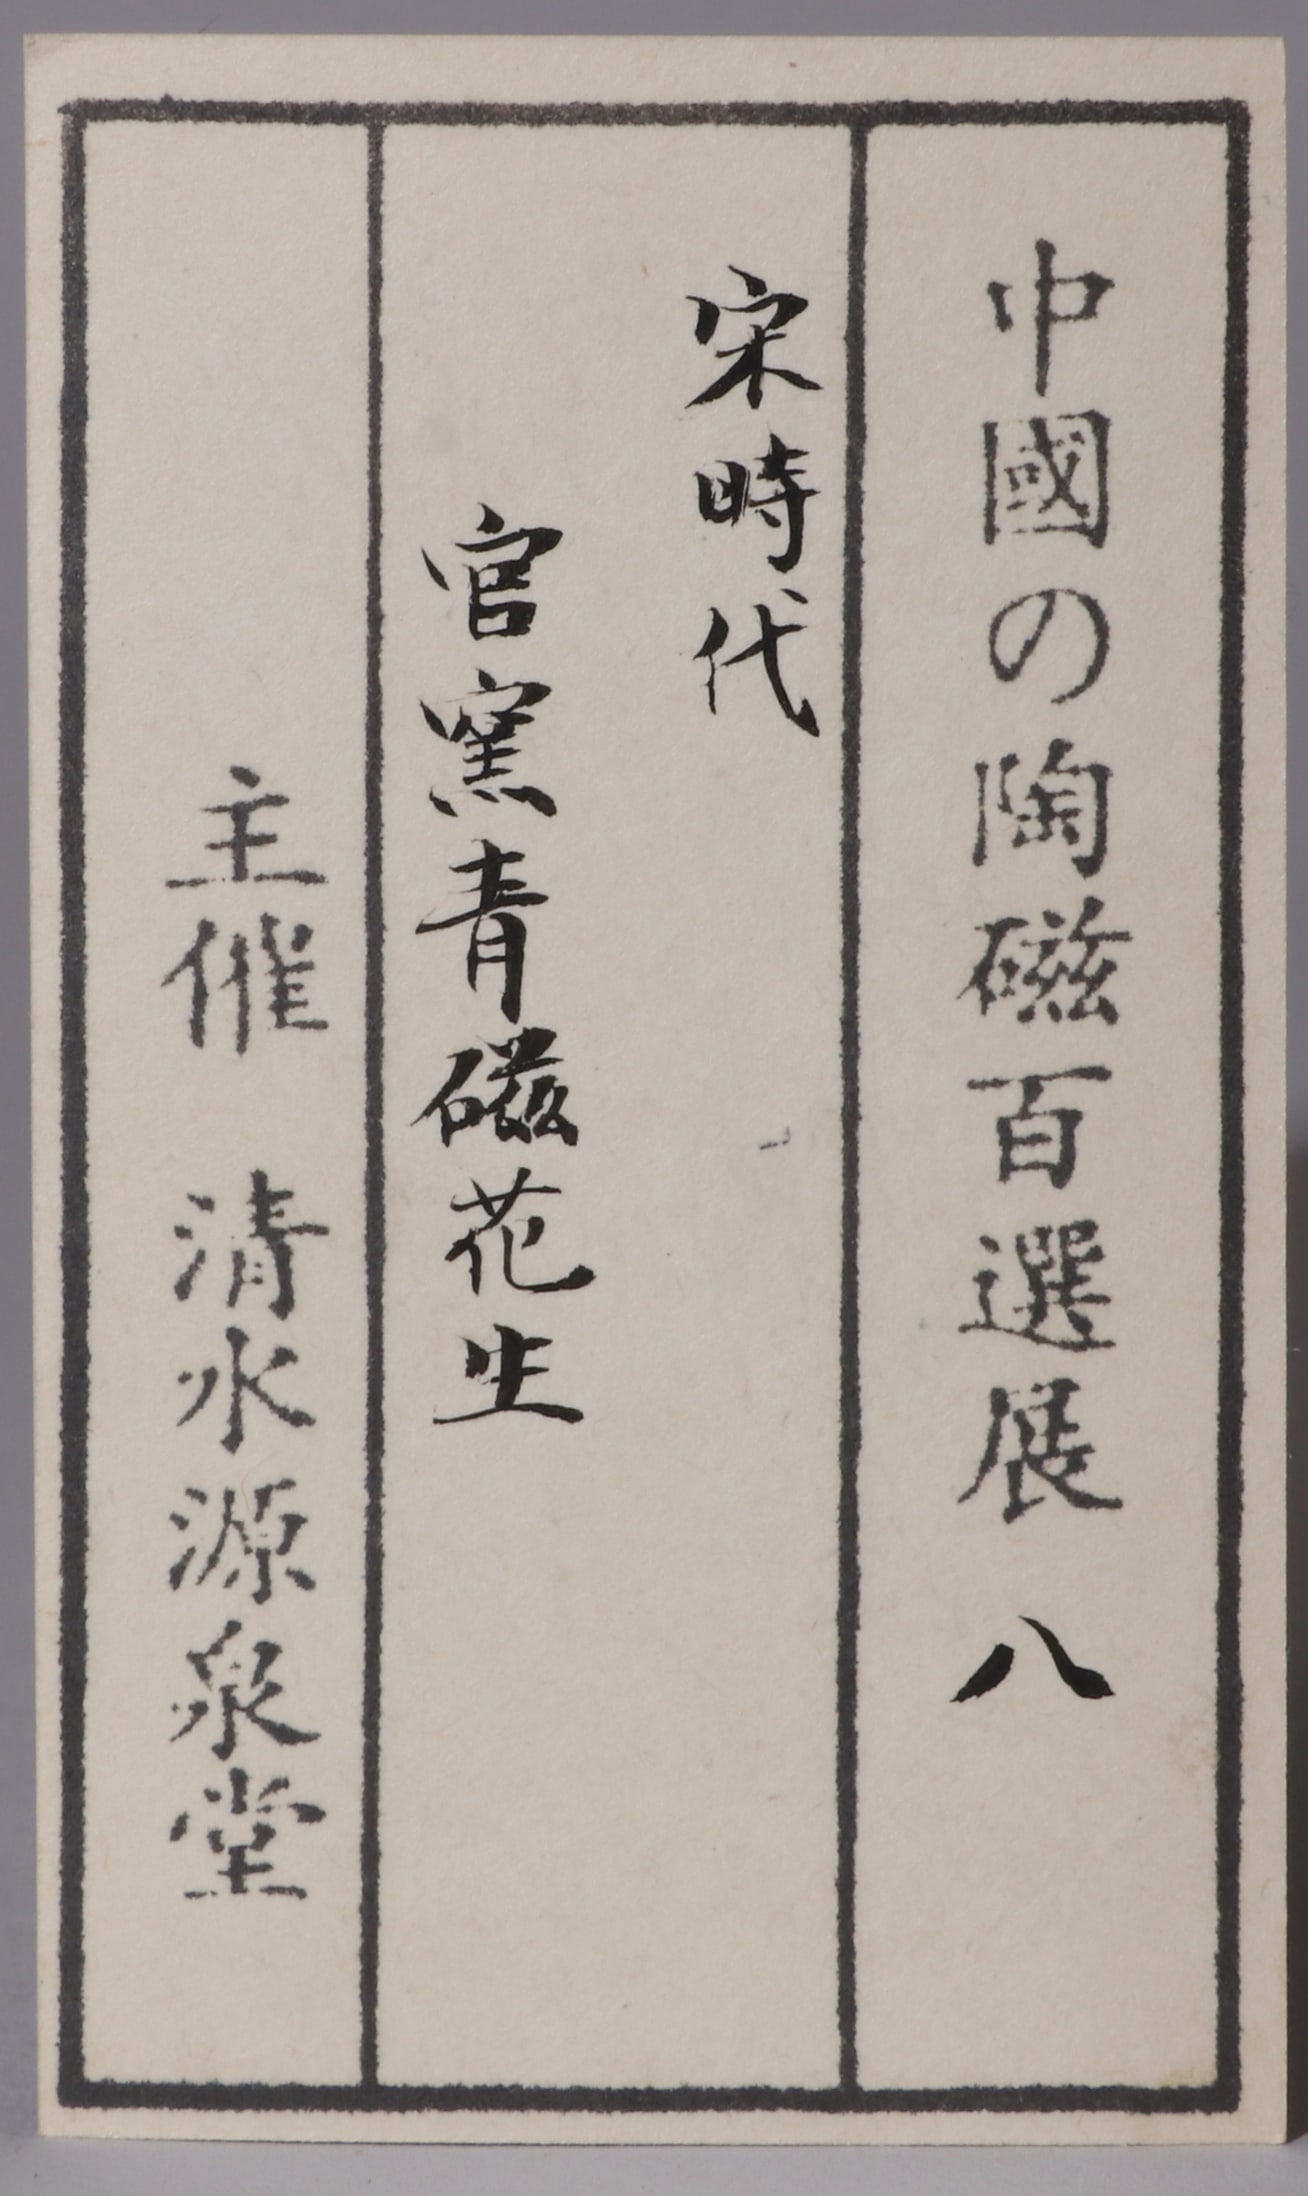 中國の陶磁百選展 八
宋時代
官窯青磁花生
主催 清水源泉堂